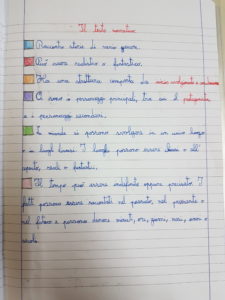 Il testo narrativo
Racconta storie di vario genere.
Può essere realistico o fantastico.
Ha una struttura composta da: inizio, svolgimento e conclusione.
Ci sono i personaggi principali, tra cui il protagonista,
e i personaggi secondari.
Le vicende si possono svolgere in un unico luogo
o in luoghi diversi. I luoghi possono essere chiusi o all'
aperto, reali o fantastici.
Il tempo può essere indefinito oppure precisato. I
fatti possono essere raccontati nel passato, nel presente o
nel futuro e possono durare minuti, ore, giorni, mesi, anni o
secoli.